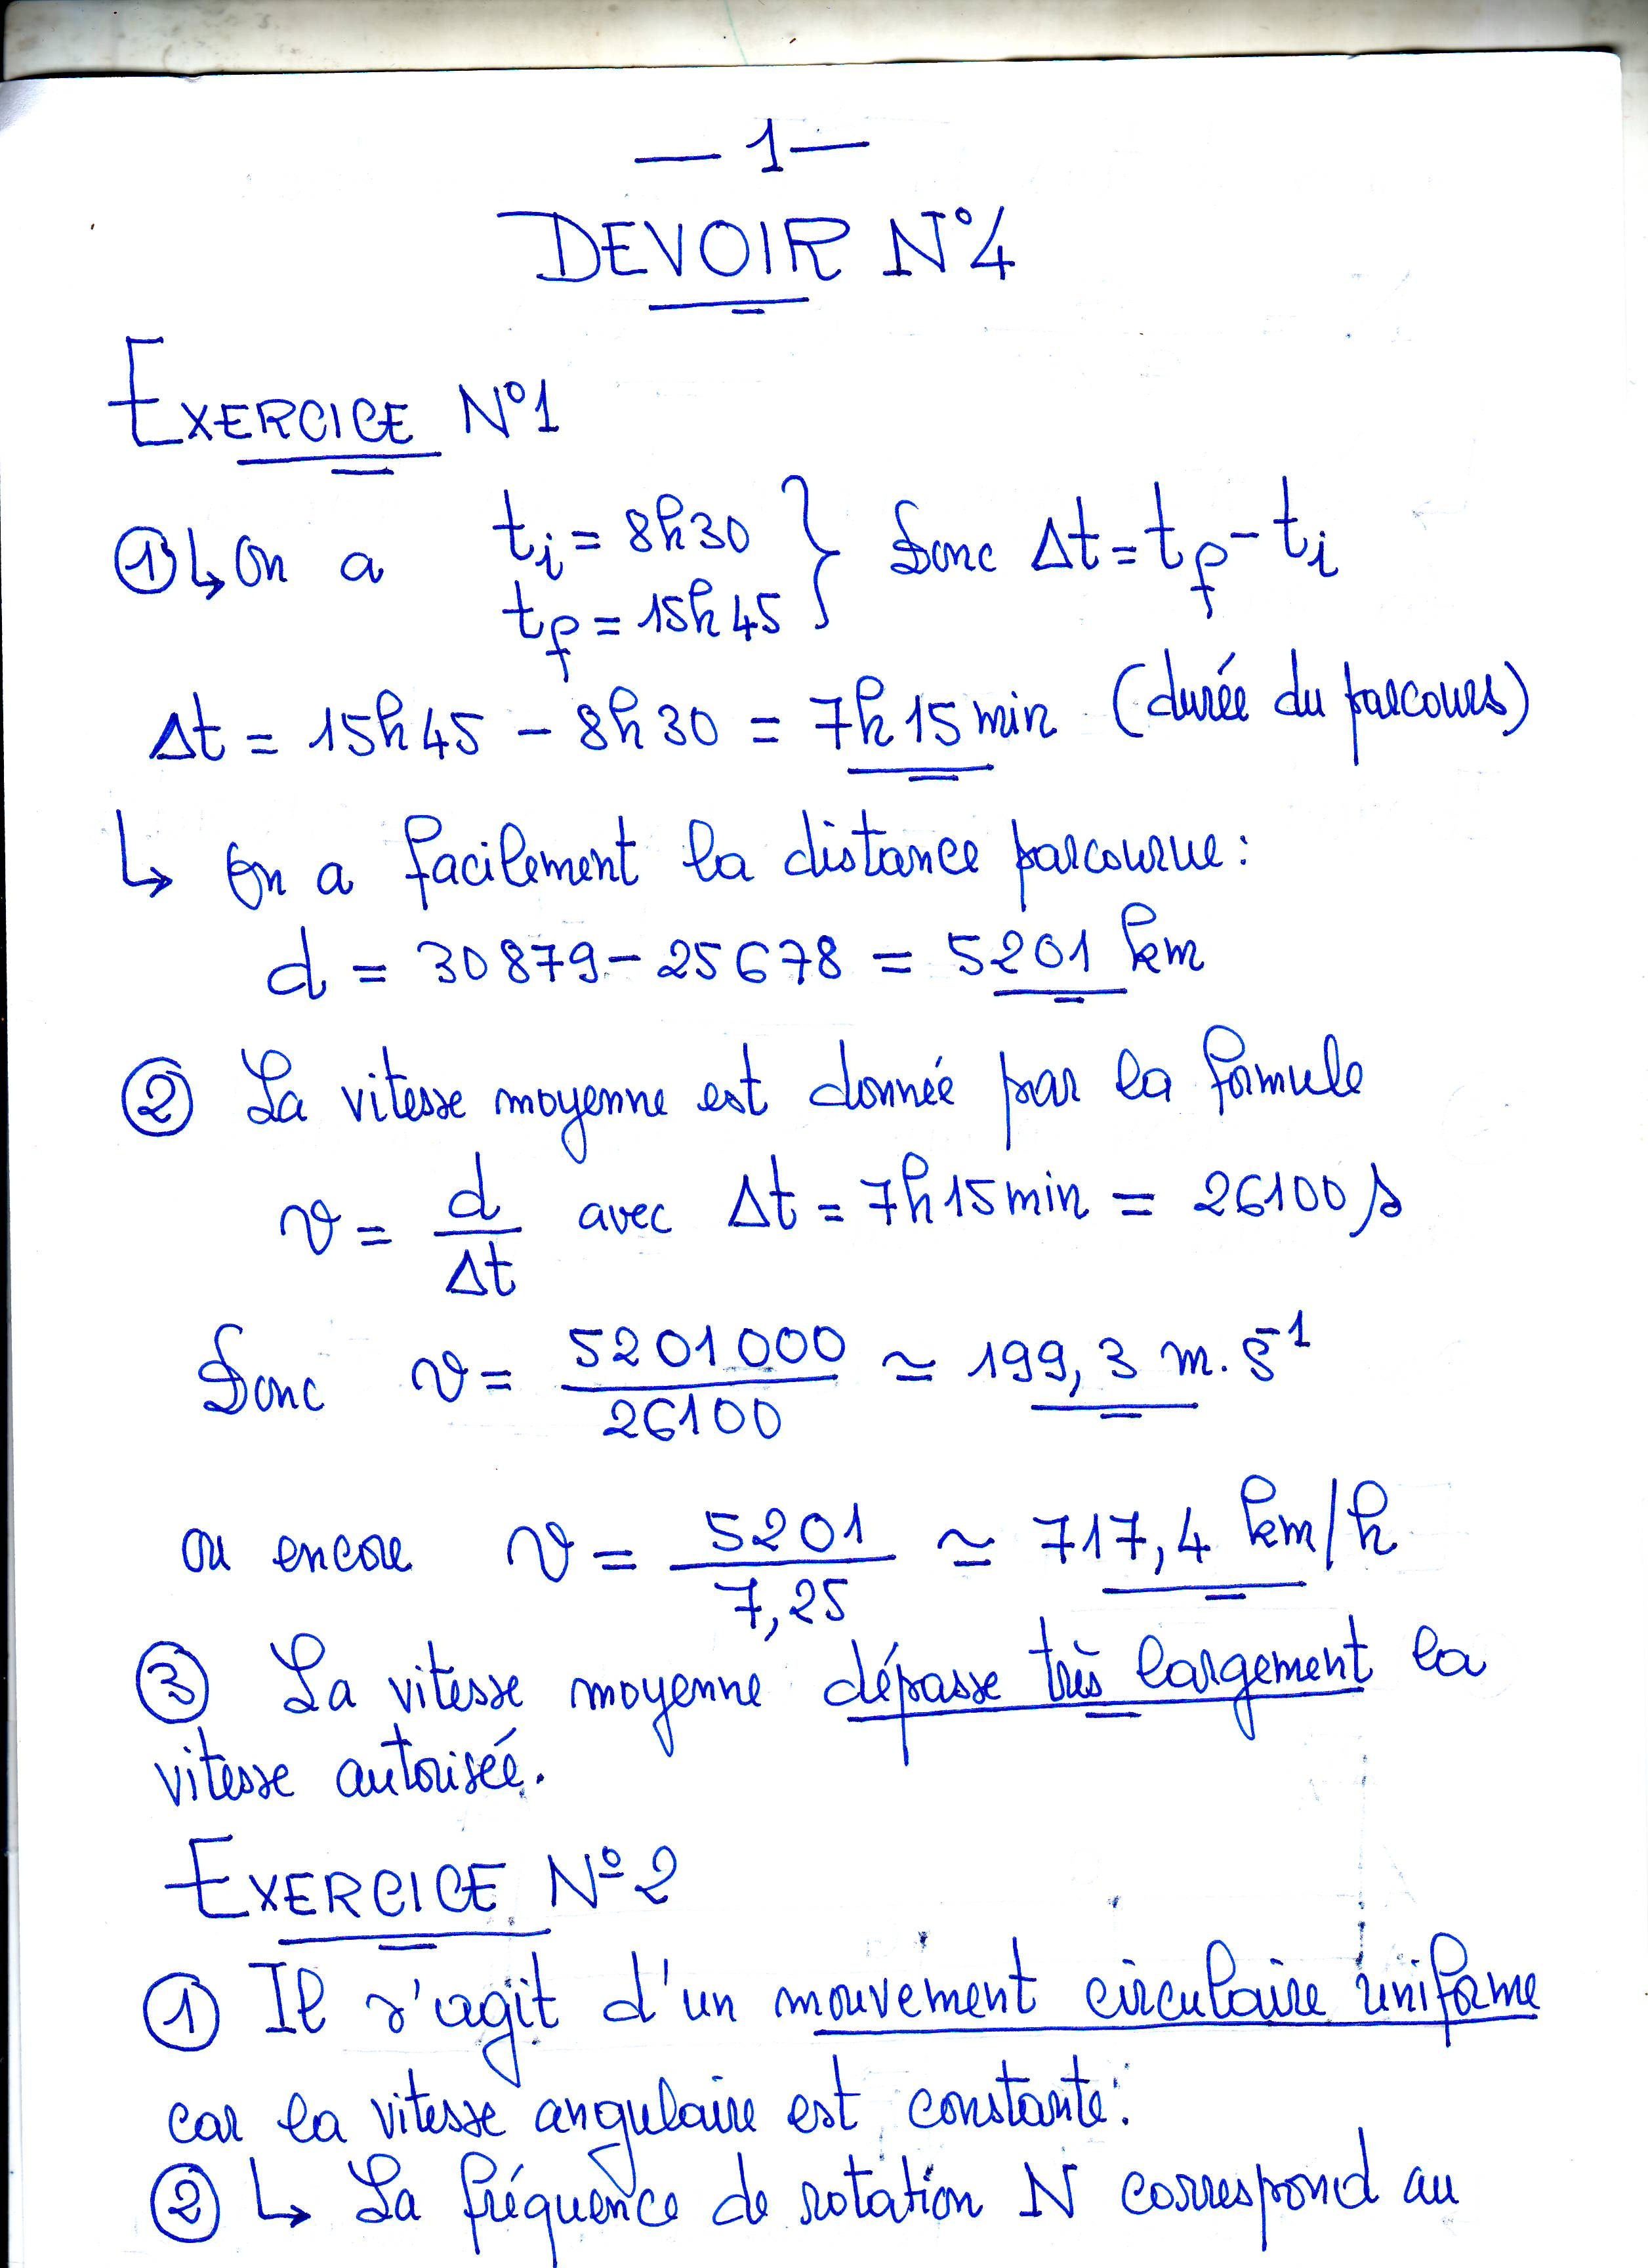 — 1 —
DEVOIR N°4
EXERCICE N°1
① ↳ On a t_i = 8h30 } Donc Δt = t_f - t_i
t_f = 15h45
Δt = 15h45 - 8h30 = 7h15min (durée du parcours)
↳ On a facilement la distance parcourue :
d = 30879 - 25678 = 5201 km
② La vitesse moyenne est donnée par la formule
v = d/Δt avec Δt = 7h15min = 26100 s
Donc v = 5201000/26100 ≃ 199,3 m.s⁻¹
ou encore v = 5201/7,25 ≃ 717,4 km/h
③ La vitesse moyenne dépasse très largement la
vitesse autorisée.
EXERCICE N°2
① Il s'agit d'un mouvement circulaire uniforme
car la vitesse angulaire est constante.
② ↳ La fréquence de rotation N correspond au